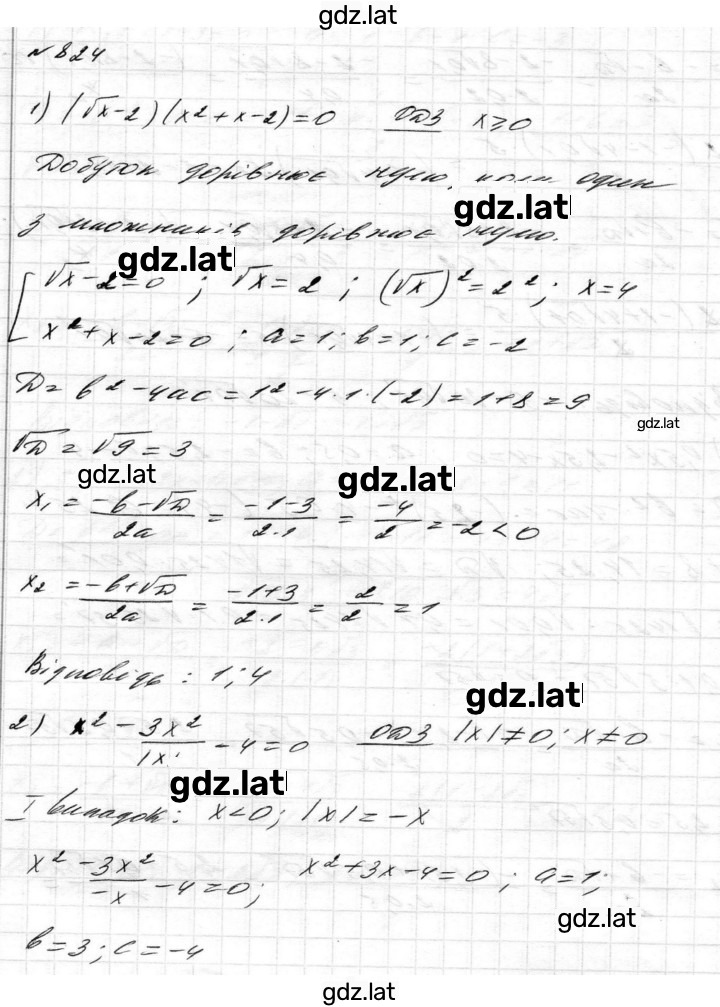 gdz.lat
№ 824
1) (√x-2)(x²+x-2)=0 ОДЗ x≥0
Добуток дорівнює нулю, коли один
gdz.lat
з множників дорівнює нулю.
gdz.lat
√x-2=0 ; √x=2 ; (√x)²=2² ; x=4
x²+x-2=0 ; a=1; b=1; c=-2
D=b²-4ac=1²-4·1·(-2)=1+8=9
gdz.lat
√D=√9=3
gdz.lat
gdz.lat
x₁ = (-b-√D)/2a = (-1-3)/2·1 = -4/2 = -2<0
x₂ = (-b+√D)/2a = (-1+3)/2·1 = 2/2 = 1
Відповідь: 1; 4
gdz.lat
2) x² - 3x²/|x| - 4=0 ОДЗ |x|≠0; x≠0
gdz.lat
I випадок: x<0; |x|=-x
x² - 3x²/-x - 4=0; x²+3x-4=0 ; a=1;
gdz.lat
b=3; c=-4
gdz.lat